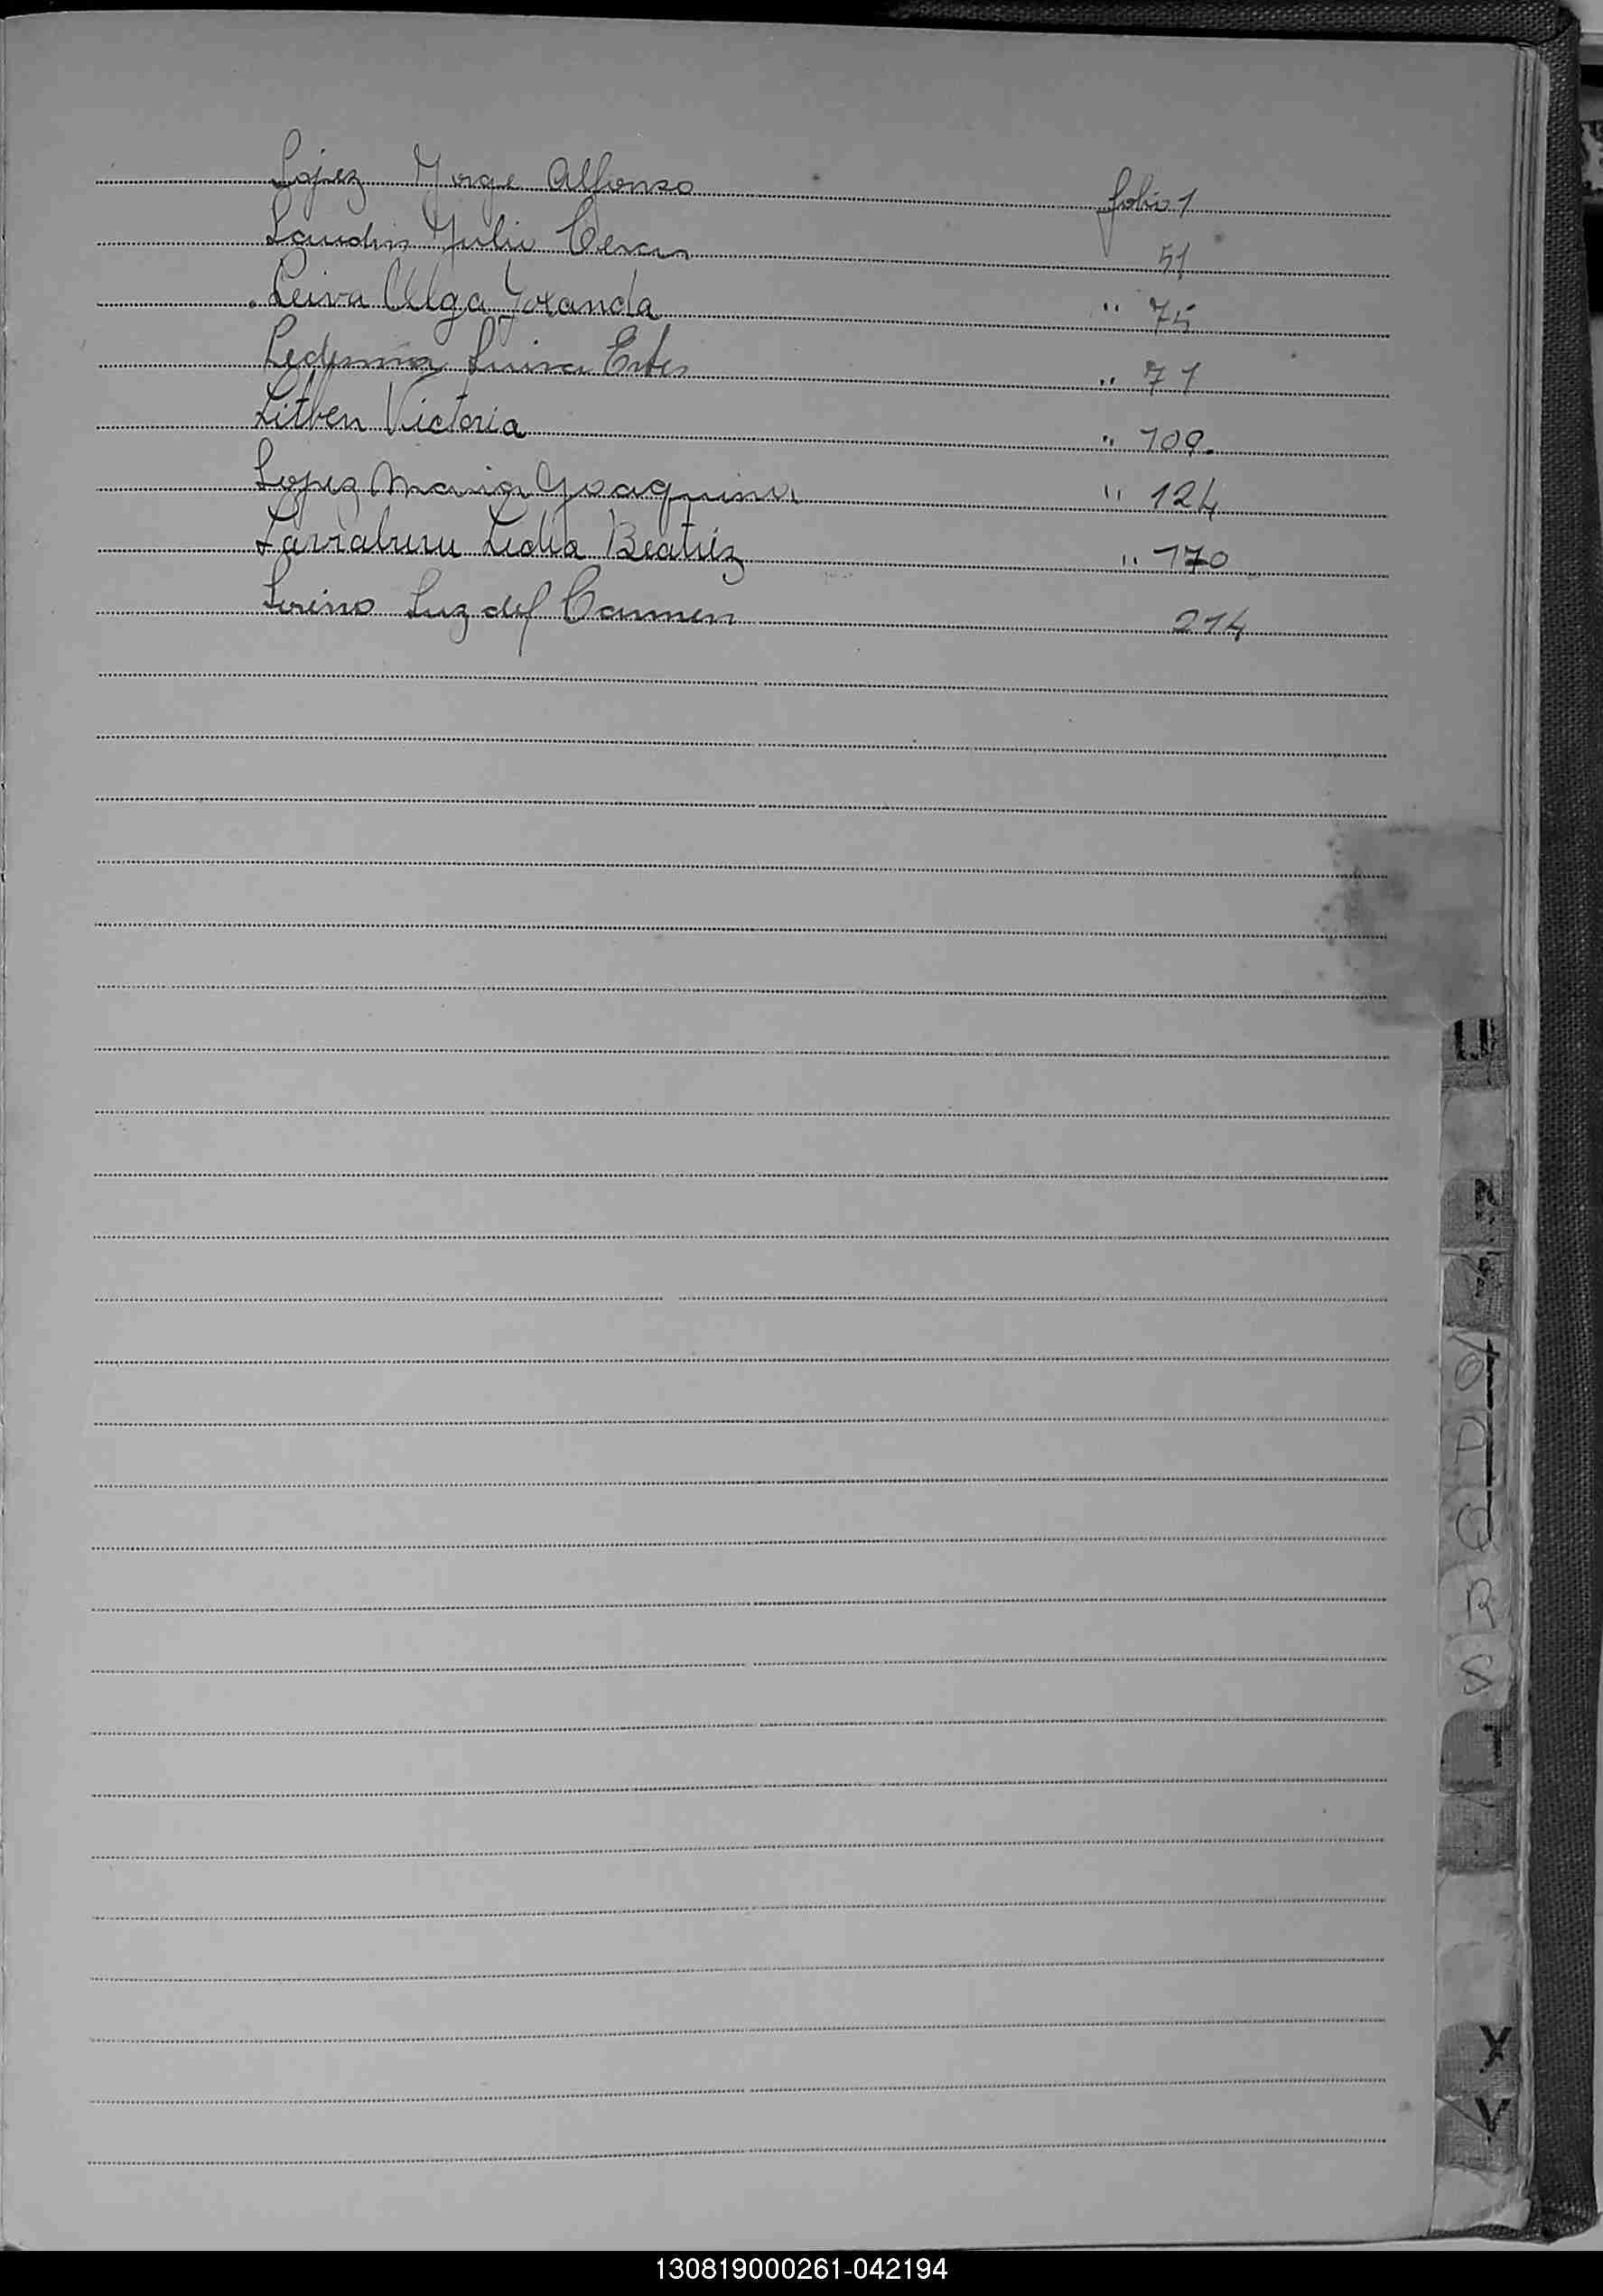 López Jorge Alfonso folio 1
Julio Cesar 51
Leiva Olga Yolanda " 75
Ledesma Luisa Ester " 71
Litben Victoria " 109.
Lopez Maria Joaquina " 124
Larraburu Lidia Beatriz " 170
Luz del Carmen 214
U
N
O
P
Q
R
S
T
X
Y
130819000261-042194